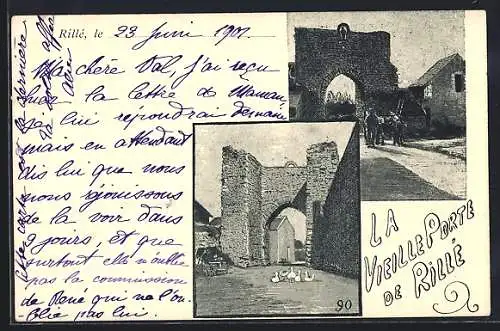 Rillé, le 23 Juin 1901.
Ma chère Val, j'ai reçu
hier la lettre de Maman
je lui répondrai demain
mais en attendant
dis lui que nous
nous réjouissons
de la voir dans
9 jours, et que
surtout elle n'oublie
pas la commission
de René qui ne l'ou-
blie pas lui.
Cette carte est la dernière
LA
VIEILLE PORTE
DE RILLÉ
90